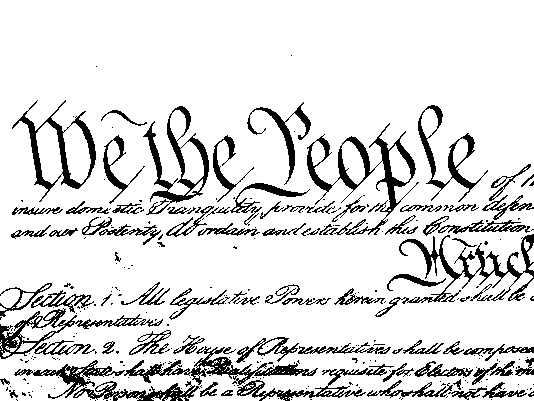 We the People of
insure domestic Tranquility, provide for the common defen
and our Posterity, do ordain and establish this Constitution
Article
Section. 1. All legislative Powers herein granted shall be
of Representatives.
Section. 2. The House of Representatives shall be composed
in each State shall have Qualifications requisite for Electors of the
No Person shall be a Representative who shall not have